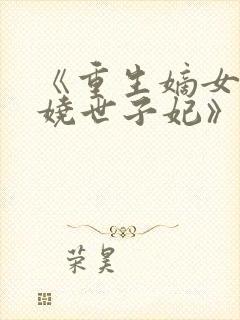 《重生嫡女妖
娆世子妃》
荣昊